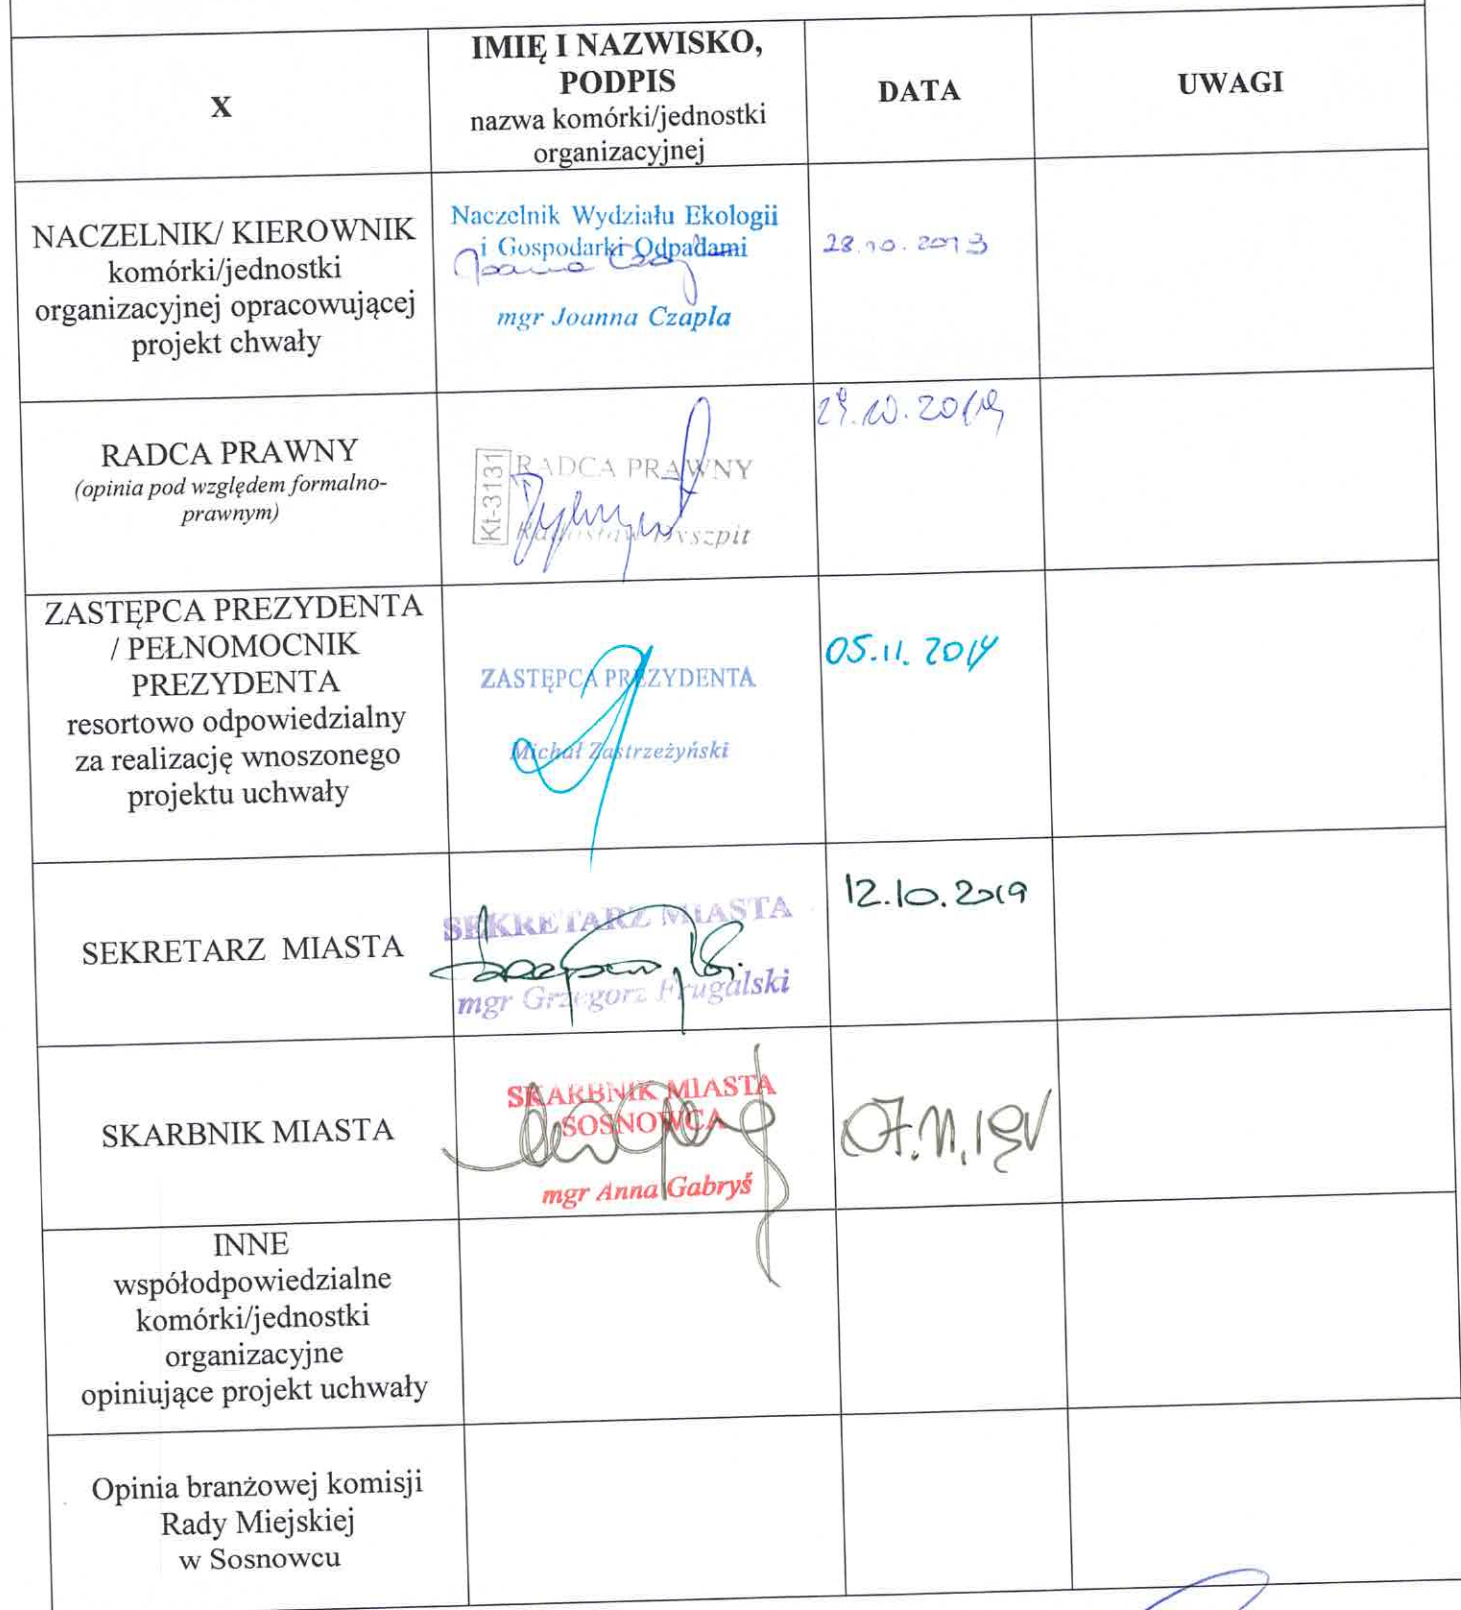 X
IMIĘ I NAZWISKO,
PODPIS
nazwa komórki/jednostki
organizacyjnej
DATA
UWAGI
NACZELNIK/ KIEROWNIK
komórki/jednostki
organizacyjnej opracowującej
projekt chwały
Naczelnik Wydziału Ekologii
i Gospodarki Odpadami
mgr Joanna Czapla
28.10.2019
RADCA PRAWNY
(opinia pod względem formalno-
prawnym)
Kt-3131
RADCA PRAWNY
Radosław Dyszpit
29.10.2019
ZASTĘPCA PREZYDENTA
/ PEŁNOMOCNIK
PREZYDENTA
resortowo odpowiedzialny
za realizację wnoszonego
projektu uchwały
ZASTĘPCA PREZYDENTA
Michał Zastrzeżyński
05.11.2019
SEKRETARZ MIASTA
SEKRETARZ MIASTA
mgr Grzegorz Frugalski
12.10.2019
SKARBNIK MIASTA
SKARBNIK MIASTA
SOSNOWCA
mgr Anna Gabryś
07.11.19
INNE
współodpowiedzialne
komórki/jednostki
organizacyjne
opiniujące projekt uchwały
Opinia branżowej komisji
Rady Miejskiej
w Sosnowcu